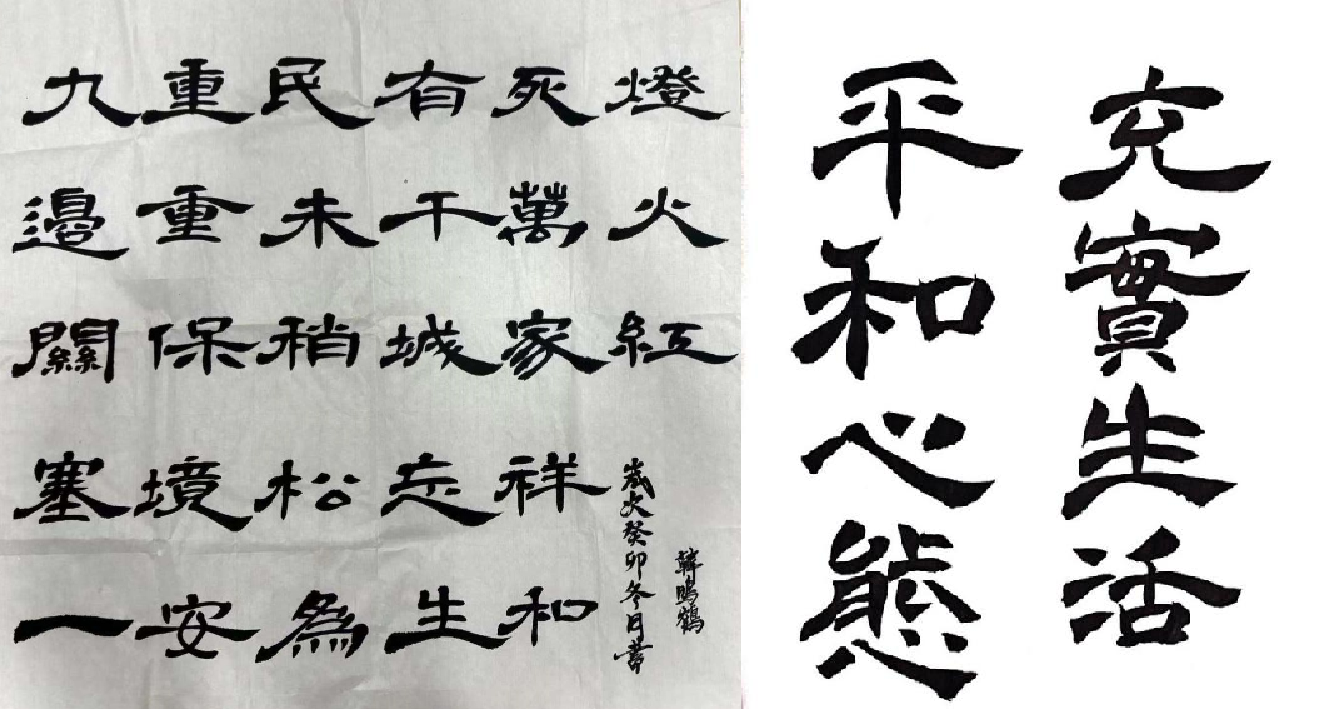 九邊關塞一
重重保境安
民未稍松為
有干城忘生
死萬家祥和
燈火紅
歲次癸卯冬日書
韓鳴鶴
充實生活
平和心態